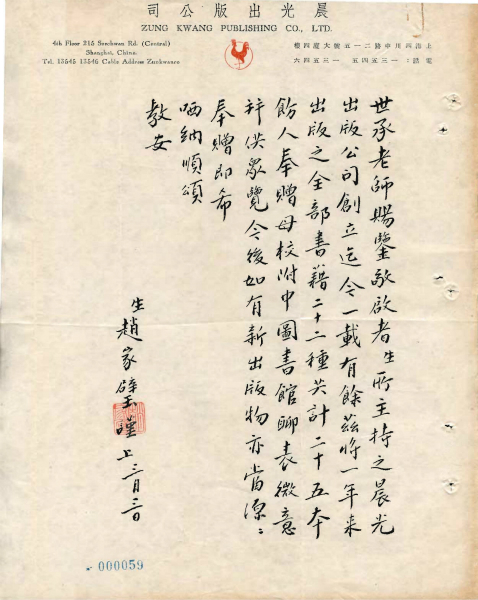 晨光出版公司
ZUNG KWANG PUBLISHING CO., LTD.
4th Floor 215 Szechwan Rd. (Central)
Shanghai, China.
Tel. 13545 13546 Cable Address Zunkwanco
上海四川中路二一五號大廈四樓
電話：一三五四五 一三五四六
世承老師賜鑒敬啟者生所主持之晨光
出版公司創立迄今一載有餘茲將一年來
出版之全部書籍二十二種共計二十五本
飭人奉贈母校附中圖書館聊表微意
并供眾覽今後如有新出版物亦當源〻
奉贈即希
哂納順頌
教安
生趙家璧謹上三月三日
000059